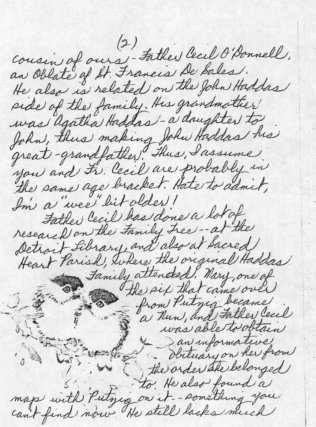 (2)
cousin of ours - Father Cecil O'Donnell,
an Oblate of St. Francis De Sales.
He also is related on the John Haddas
side of the family. His grandmother
was Agatha Haddas - a daughter to
John, thus making John Haddas his
great-grandfather. Thus, I assume
you and Fr. Cecil are probably in
the same age bracket. Hate to admit,
I'm a "wee" bit older!
Father Cecil has done a lot of
research on the Family Tree -- at the
Detroit Library, and also at Sacred
Heart Parish, where the original Haddas
Family attended. Mary, one of
the six that came over
from Putzig became
a Nun, and Father Cecil
was able to obtain
an informative
Obituary on her from
the order she belonged
to. He also found a
map with Putzig on it -- something you
can't find now. He still lacks much